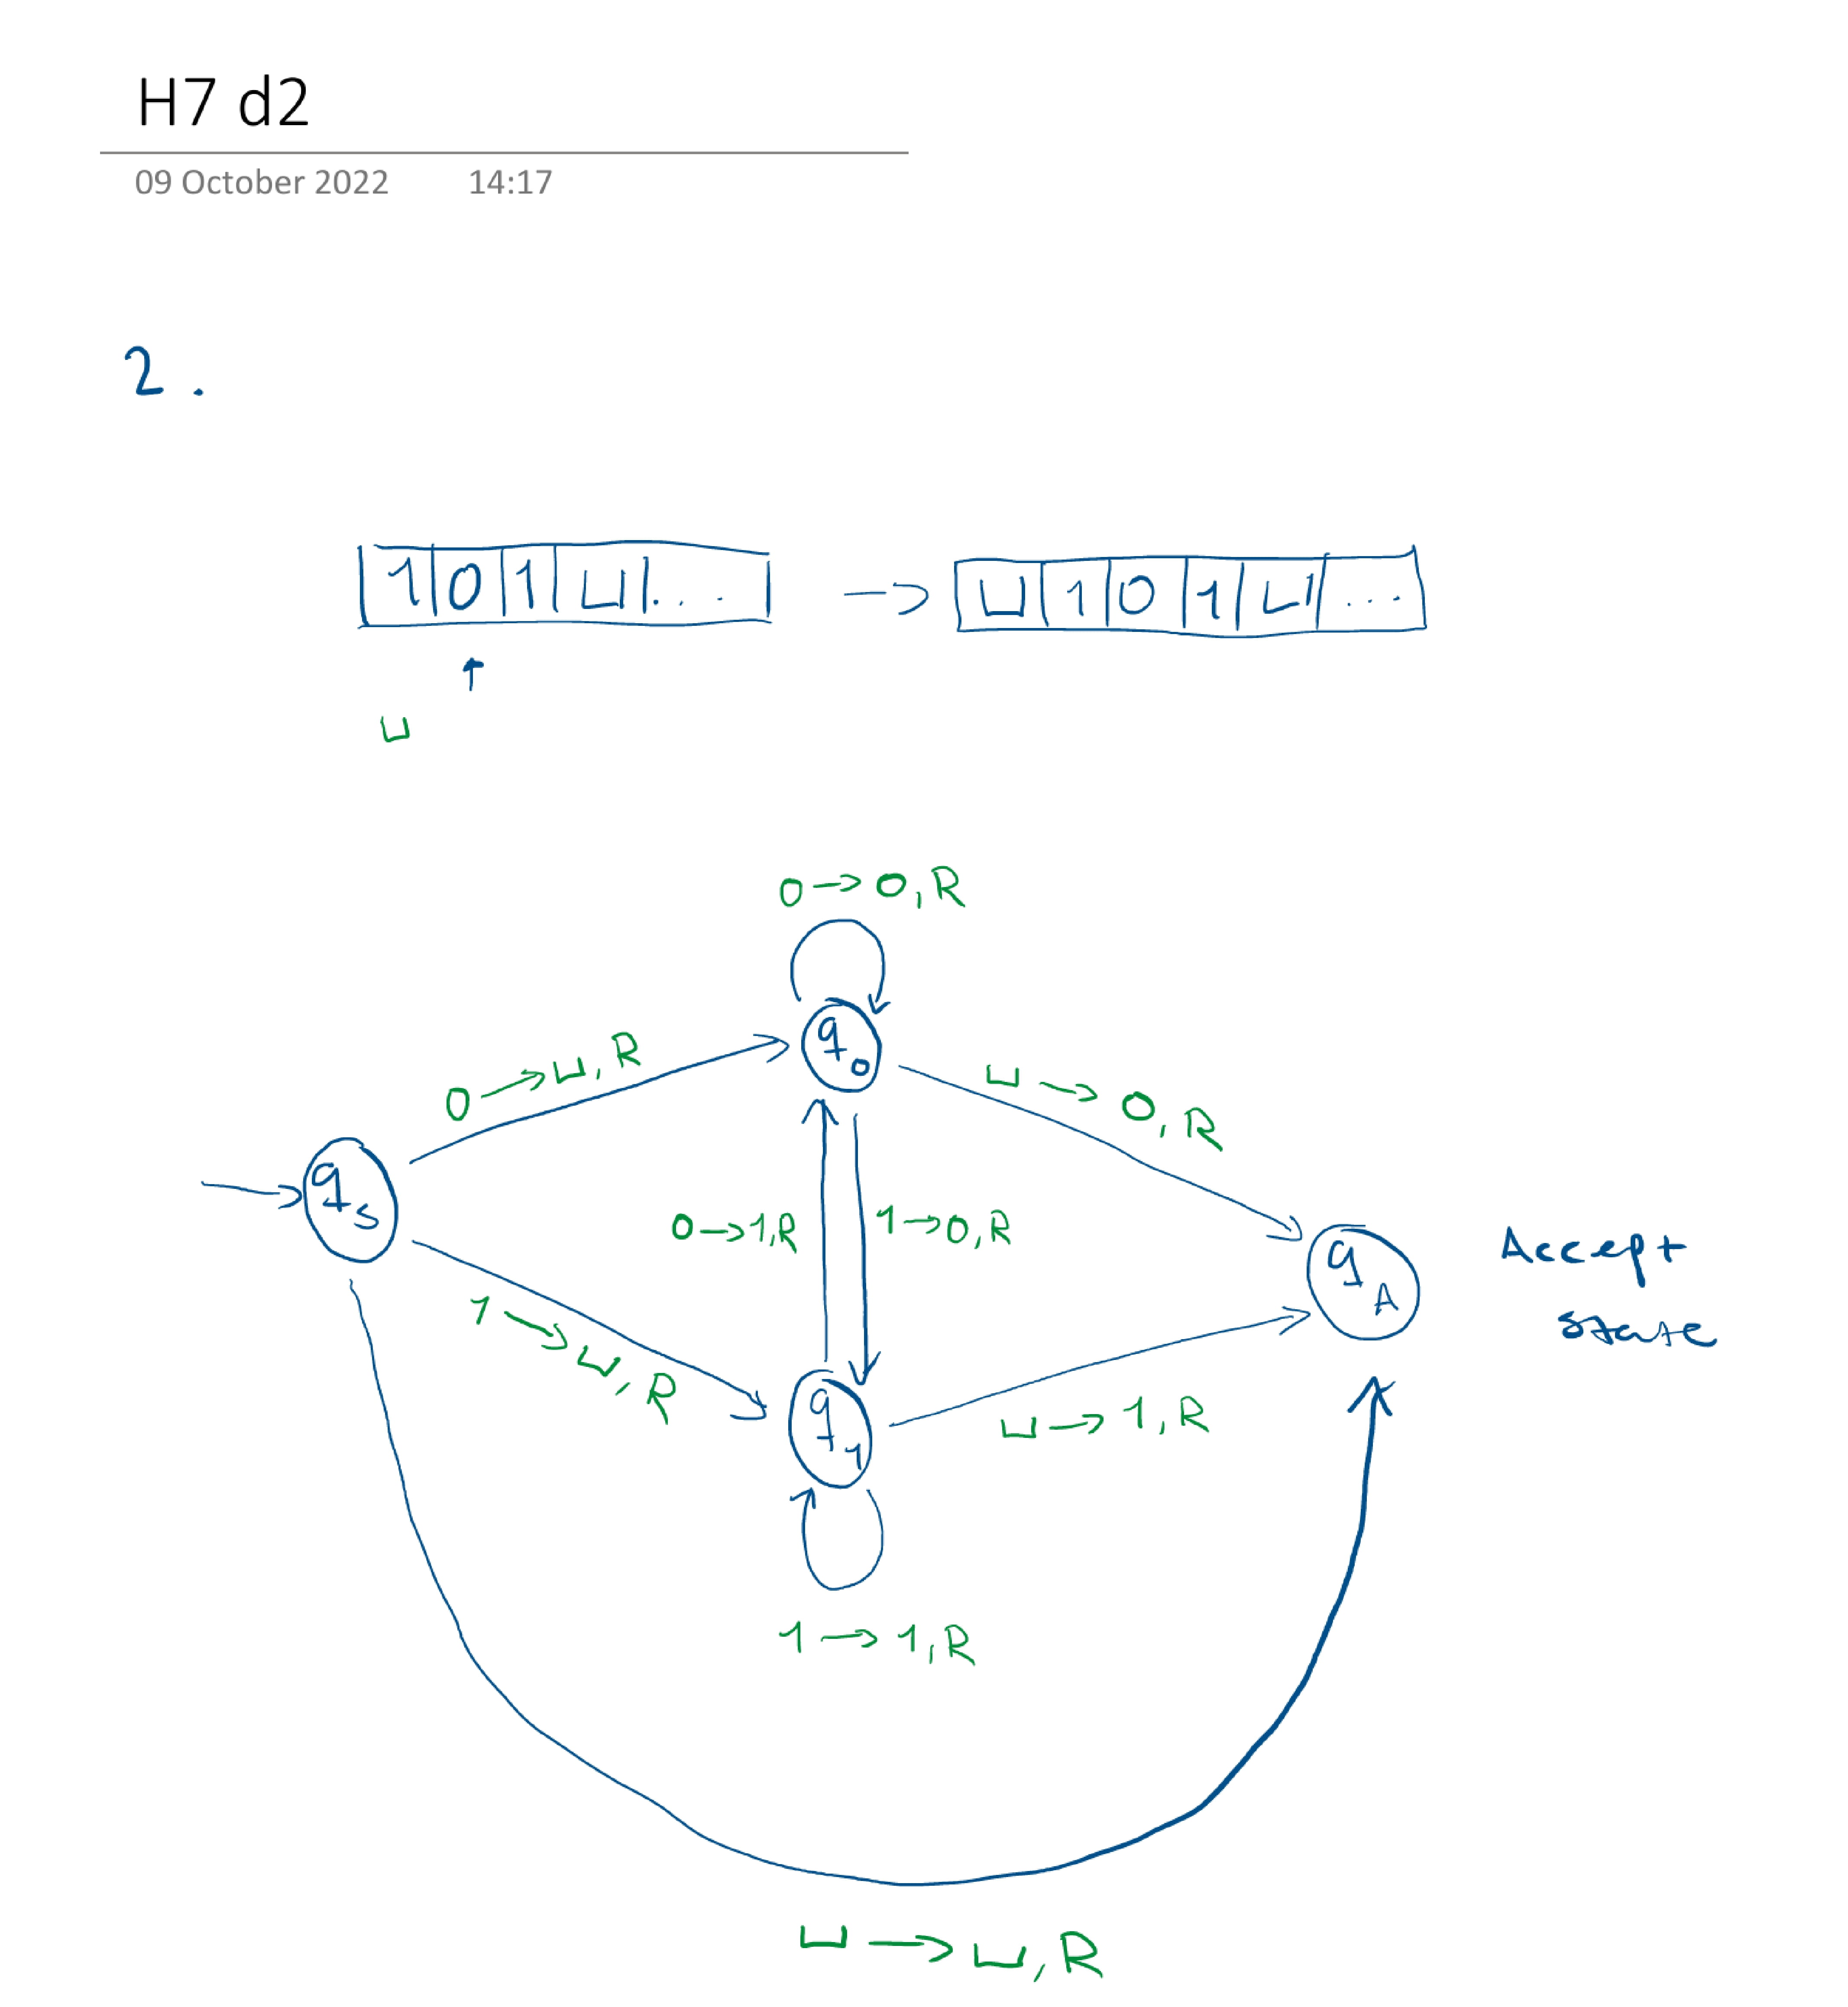 H7 d2
09 October 2022 14:17
2.
1 0 1 ⊔ ... → ⊔ 1 0 1 ⊔ ...
↑
⊔
0→0,R
q0
0→⊔,R
⊔→0,R
qS
0→1,R
1→0,R
qA
Accept
state
1→⊔,R
q1
⊔→1,R
1→1,R
⊔→⊔,R